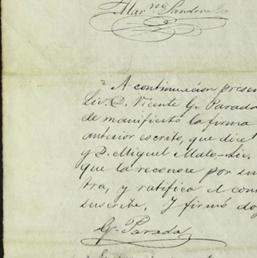 Mar.no Sandoval
A continuacion presen
Liv. D. Vicente G. Parada
de manifiesto la firma
anterior escrito, que dice
y D. Miguel Mate-Liv.
que la reconoce por su
tra, y ratifica el con
suscrito, Y firmó do
G. Parada